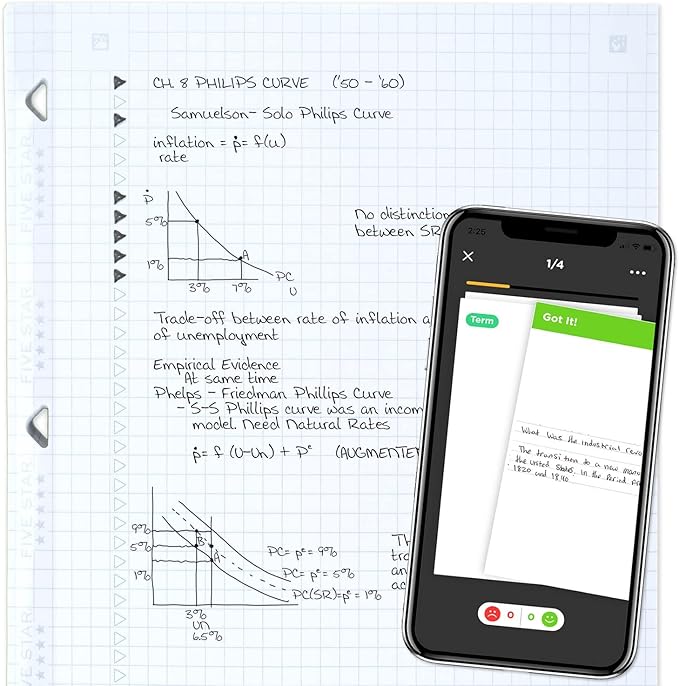 CH. 8 PHILIPS CURVE ('50 - '60)
Samuelson- Solo Philips Curve
inflation = ṗ= f(u)
rate
ṗ
5%
1%
A
3% 7%
PC
U
No distinction
between SR
Trade-off between rate of inflation a
of unemployment
Empirical Evidence
At same time
Phelps - Friedman Phillips Curve
- S-S Phillips curve was an incom
model. Need Natural Rates
ṗ= f (U-Un) + Pᵉ (AUGMENTE
9%
5%
1%
B
A
PC= pᵉ= 9%
PC= pᵉ= 5%
PC(SR)=pᵉ= 1%
3%
Un
6.5%
Th
tra
an
ac
FIVE STAR
FIVE STAR
FIVE STAR
FIVE STAR
2:25
1/4
Term
Got It!
What was the industrial revo
The transition to a new manu
the United States, in the period
1820 and 1840
0 0